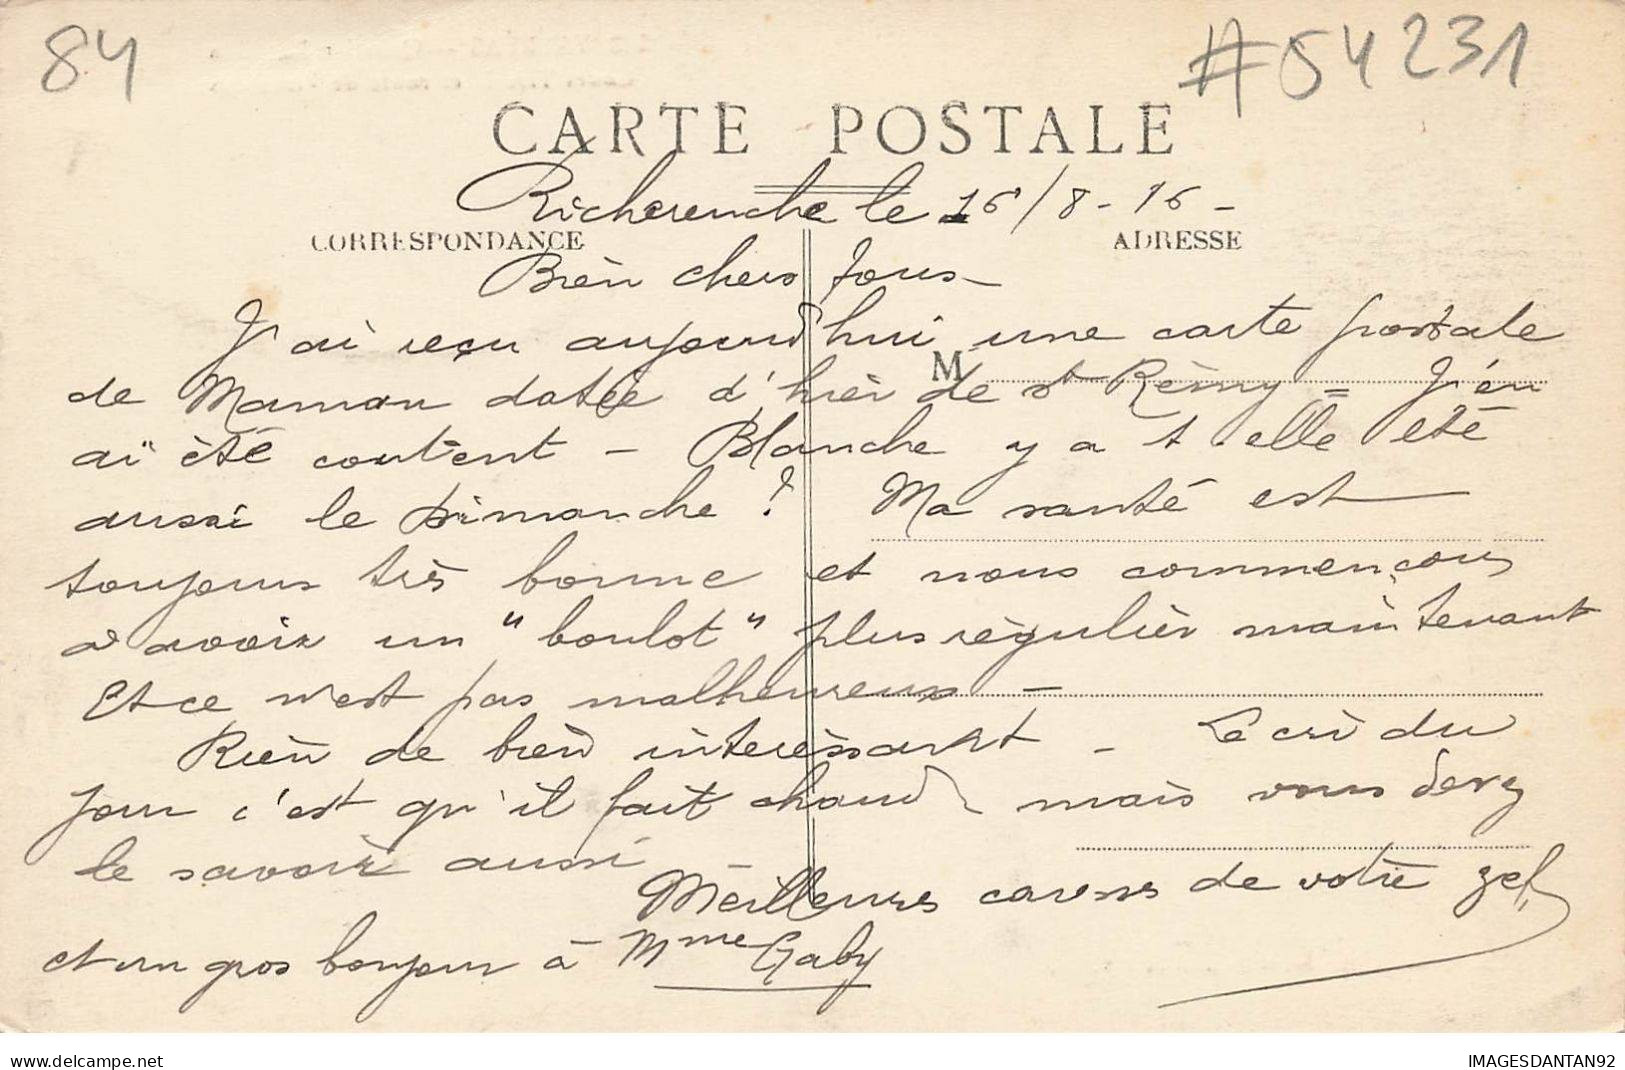 84
#54231
CARTE POSTALE
Richerenche le 16/8-16-
CORRESPONDANCE
ADRESSE
Bien chers Tous-
J'ai reçu aujourd'hui une carte postale
M
de Maman datée d'hier de St Rémy = J'en
ai été content - Blanche y a t elle été
aussi le Dimanche ? Ma santé est
toujours très bonne et nous commençons
a avoir un "boulot" plus régulier maintenant
Et ce n'est pas malheureux -
Rien de bien interéssant - Le cri du
jour c'est qu'il fait chaud mais vous devez
le savoir aussi
Meilleures caresses de votre zef
et un gros bonjour à Mme Gaby
www.delcampe.net
IMAGESDANTAN92